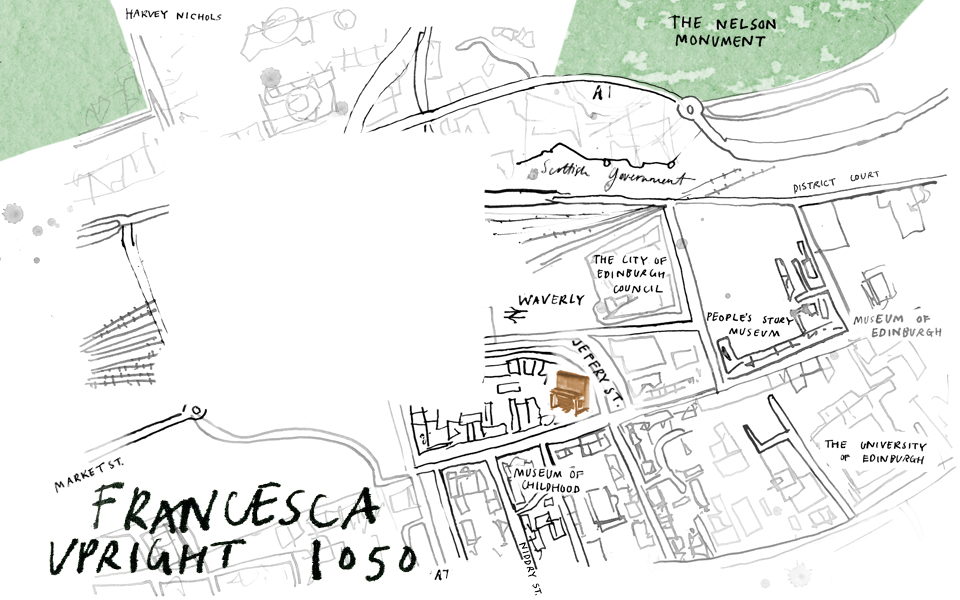 HARVEY NICHOLS
THE NELSON
MONUMENT
A1
Scottish Government
DISTRICT COURT
THE CITY OF
EDINBURGH
COUNCIL
WAVERLY
PEOPLE'S STORY
MUSEUM
MUSEUM OF
EDINBURGH
JEFFERY ST.
THE UNIVERSITY
OF EDINBURGH
MARKET ST.
MUSEUM OF
CHILDHOOD
FRANCESCA
UPRIGHT 1050
A7
NIDDRY ST.